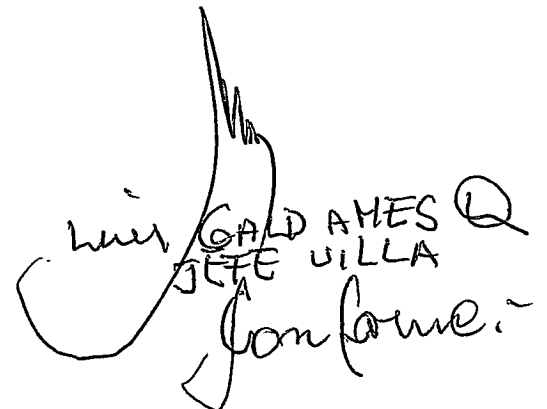 Luis GALDAMES Q
JEFE VILLA
Conforme.-